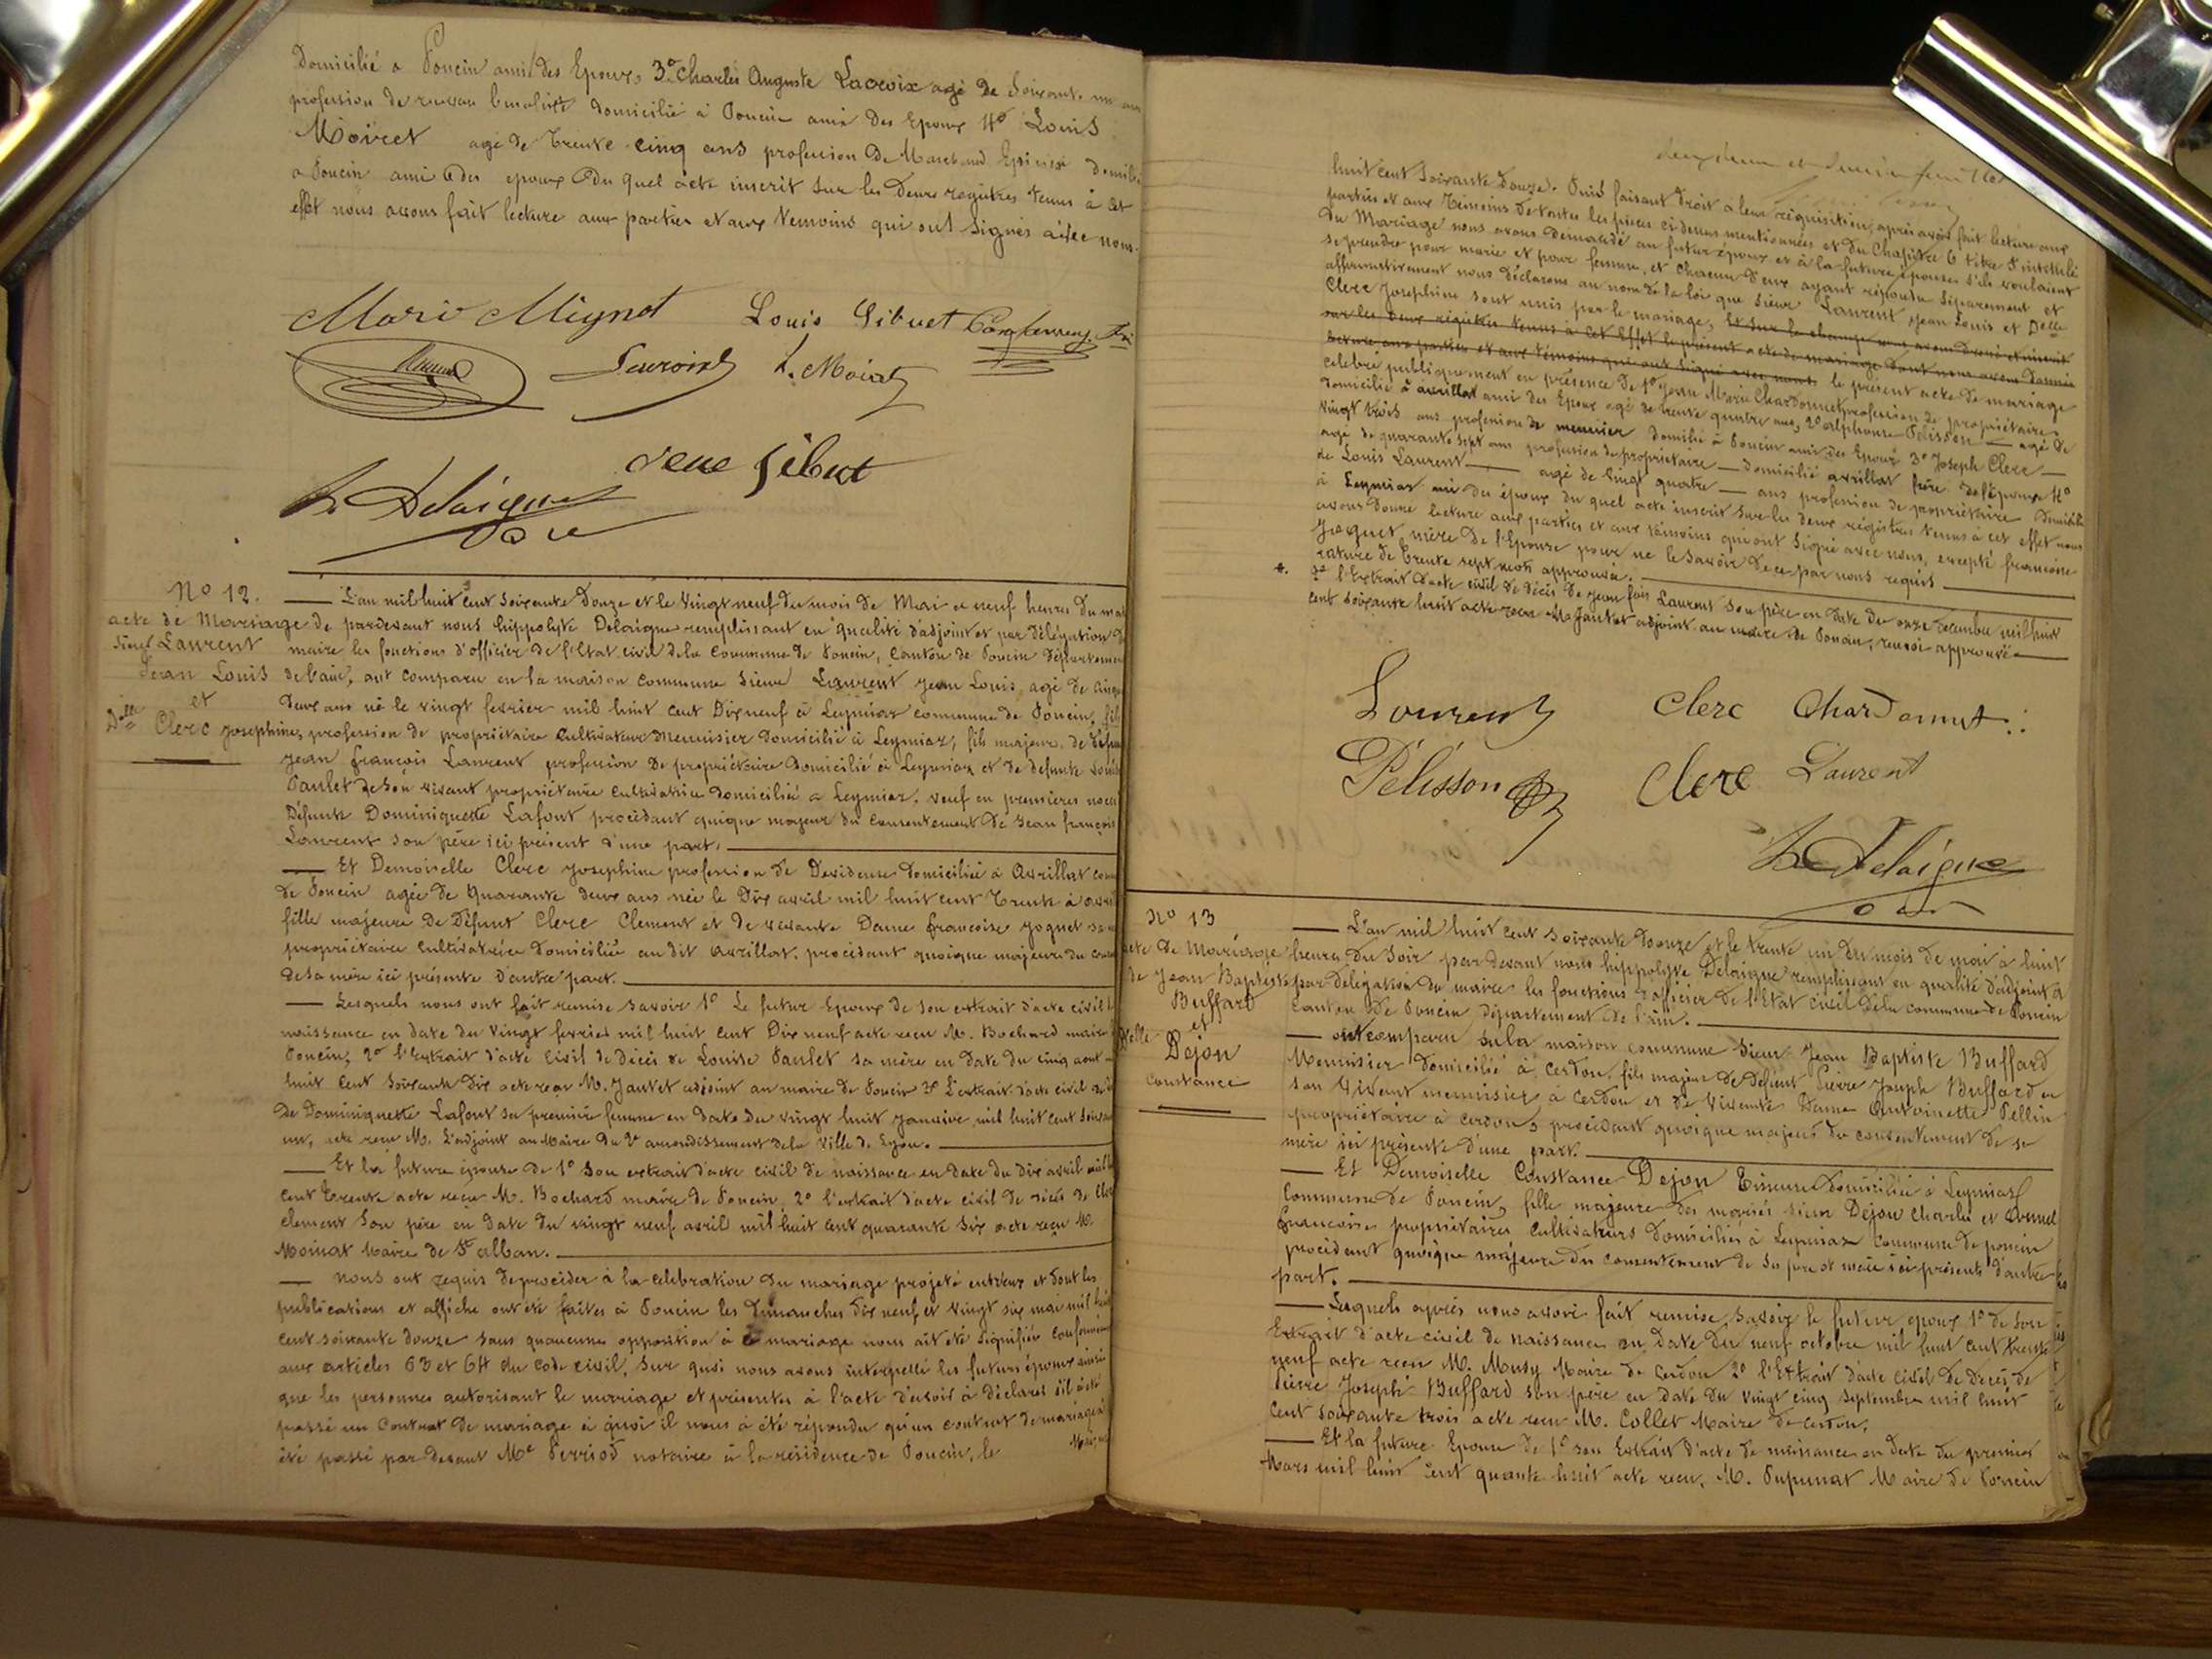 Domicilié a Poncin ami des Epoux, 3º Charles Auguste Lacroix agé de Soixante un ans
profession de domicilié à Poncin ami des Epoux 4º Louis
Moiret agé de Trente cinq ans profession De Marchand Epicier domicilié
a Poncin ami des epoux Du quel acte inscrit sur les Deux registres tenus à cet
effet nous avons fait lecture aux parties et aux temoins qui ont signés avec nous.
Marie Mignot Louis Gibuet
Lacroix L. Moiret
Gibuet
h Delaigue
Nº 12.
acte de Mariage de
Sieur Laurent
Jean Louis
et
Delle Clerc Josephine
L'an mil huit cent soixante Douze et le Vingt neuf du mois de Mai a neuf heures du matin
pardevant nous hippolyte Delaigue remplissant en qualité d'adjoint et par délégation du
maire les fonctions d'officier de l'Etat civil de la Commune de Poncin, Canton de Poncin Département
de l'ain, ont comparu en la maison commune Sieur Laurent Jean Louis agé de cinquante
deux ans né le vingt fevrier mil huit cent Dix neuf à Leymiaz commune de Poncin,
profession de propriétaire Cultivateur Menuisier domicilié à Leymiaz, fils majeur de
Jean françois Laurent profession De propriétaire Domicilié à Leymiaz et de defunte Louise
Paulet de son vivant propriétaire Cultivatrice domiciliée a Leymiaz, veuf en premieres noces
Défunte Dominiquette Lafont procédant quoique majeur du Consentement de Jean françois
Laurent son père ici présent d'une part.
Et Demoiselle Clerc Josephine profession de Devideuse domiciliée à Avrillat
de Poncin agée de Quarante deux ans née le Dix avril mil huit cent Trente à
fille majeure de Défunt Clerc Clement et de vivante Dame francoise Joquet
propriétaire Cultivatrice domiciliée au dit Avrillat, procédant quoique majeure du
de sa mère ici présente d'autre part.
Lesquels nous ont fait remise savoir 1º Le futur Epoux de son extrait d'acte civil
naissance en date du Vingt fevrier mil huit cent Dix neuf acte recu M. Bochard maire
Poncin, 2º l'Extrait d'acte Civil de Décès de Louise Paulet sa mère en date du cinq aout
huit Cent Soixante Dix acte reçu M. Jantet adjoint au maire de Poncin 3º L'extrait d'acte civil
De Dominiquette Lafont sa premiere femme en date du vingt huit Janvier mil huit cent soixante
un, acte recu M. L'adjoint au Maire du arrondissement de la Ville de Lyon.
Et la future épouse de 1º Son extrait d'acte civil de naissance en date du Dix avril mil huit
cent trente acte recu M. Bochard maire de Poncin, 2º l'extrait d'acte civil de décès de Clerc
clement Son père en date du vingt neuf avril mil huit cent quarante Six acte recu M.
Moinat Maire de St alban.
Nous ont requis de procéder à la celebration du mariage projeté entr'eux et dont les
publications et affiche ont été faites à Poncin les dimanches dix neuf et vingt six mai mil huit
cent soixante douze sans qu'aucune opposition à ce mariage nous ait été signifiée conformément
aux articles 63 et 64 du Code civil, Sur quoi nous avons interpellé les futurs époux ainsi
que les personnes autorisant le mariage et présentes à l'acte d'avoir à déclarer s'il a été
passé un Contrat de mariage à quoi il nous à été répondu qu'un contrat de mariage a
été passé par devant Me Perriod notaire à la résidence de Poncin, le Mai,
huit Cent Soixante Douze. Puis faisant Droit a leur réquisition, après avoir fait lecture aux
parties et aux Témoins de toutes les pièces ci-dessus mentionnées et du Chapitre 6 titre 5 intitulé
Du Mariage nous avons demandé au futur époux et à la future épouse s'ils voulaient
se prendre pour marie et pour femme, et Chacun D'eux ayant répondu séparement et
affirmativement nous déclarons au nom de la loi que Sieur Laurent Jean Louis et Delle
Clerc Josephine sont unis par le mariage, Et sur le champ nous avons Dressé et inscrit
sur les deux régistres tenus a cet Effet le présent acte de mariage dont nous avons donné
lecture aux parties et aux témoins qui ont signé avec nous. le présent acte de mariage
celebré publiquement en présence de 1º Jean Marie Chardonnet profession de propriétaire
domicilié à avrillat ami des Epoux agé de trente quatre ans, 2º alphonse Pélisson agé de
vingt trois ans profession de meunier domicilié à Poncin ami des Epoux 3º Joseph Clerc
agé de quarante sept ans profession de propriétaire domicilié avrillat frère de l'épouse 4º
de Louis Laurent agé de Vingt quatre ans profession de propriétaire domicilié
à Leymiaz ami des époux du quel acte inscrit sur les deux régistres tenus à cet effet nous
avons donné lecture aux parties et aux témoins qui ont signé avec nous, excepté francoise
Joquet mère de l'Epouse pour ne le savoir de ce par nous requis
rature de trente sept mots approuvée.
l'Extrait d'acte civil de décès de Jean fois Laurent son père en date du onze decembre mil huit
cent soixante huit acte recu M. Jantet adjoint au maire de Poncin, renvoi approuvé
Laurent Clerc Chardonnet
Pélisson Clerc Laurent
h Delaigue
Nº 13
acte de Mariage
de Jean Baptiste
Buffard
et
Delle
Dejon
Constance
L'an mil huit cent soixante Douze et le trente un du mois de mai à huit
heures du Soir par devant nous hippolyte Delaigue remplissant en qualité d'adjoint et
par delégation du maire les fonctions d'officier de l'Etat civil de la commune de Poncin
Canton De Poncin, département de l'ain.
ont comparu en la maison commune Sieur Jean Baptiste Buffard
Menuisier domicilié à Cerdon, fils majeur de Défunt Pierre Joseph Buffard en
son Vivant menuisier à Cerdon et de Vivante Dame Antoinette Pellin
propriétaire à Cerdon, procédant quoique majeur du consentement de sa
mère ici présente d'une part.
Et Demoiselle Constance Dejon Tisseuse domiciliée à Leymiaz
Commune de Poncin, fille majeure des mariés sieur Dejon Charles et
francoise propriétaires cultivateurs domiciliés à Leymiaz Commune de poncin
procédant quoique majeure du consentement de Ses pere et mère ici présents d'autre
part.
Lesquels après nous avoir fait remise savoir le futur epoux 1º de son
Extrait d'acte civil de naissance en date du neuf octobre mil huit cent trente
neuf acte recu M. Musy Maire de Cerdon 2º l'Extrait d'acte civil de Décès de
Pierre Joseph Buffard son père en date du vingt cinq septembre mil huit
cent soixante trois acte recu M. Collet Maire de Cerdon.
Et la future Epouse de 1º son Extrait d'acte de naissance en date du premier
Mars mil huit cent quante huit acte recu, M. Pupunat Maire de Poncin